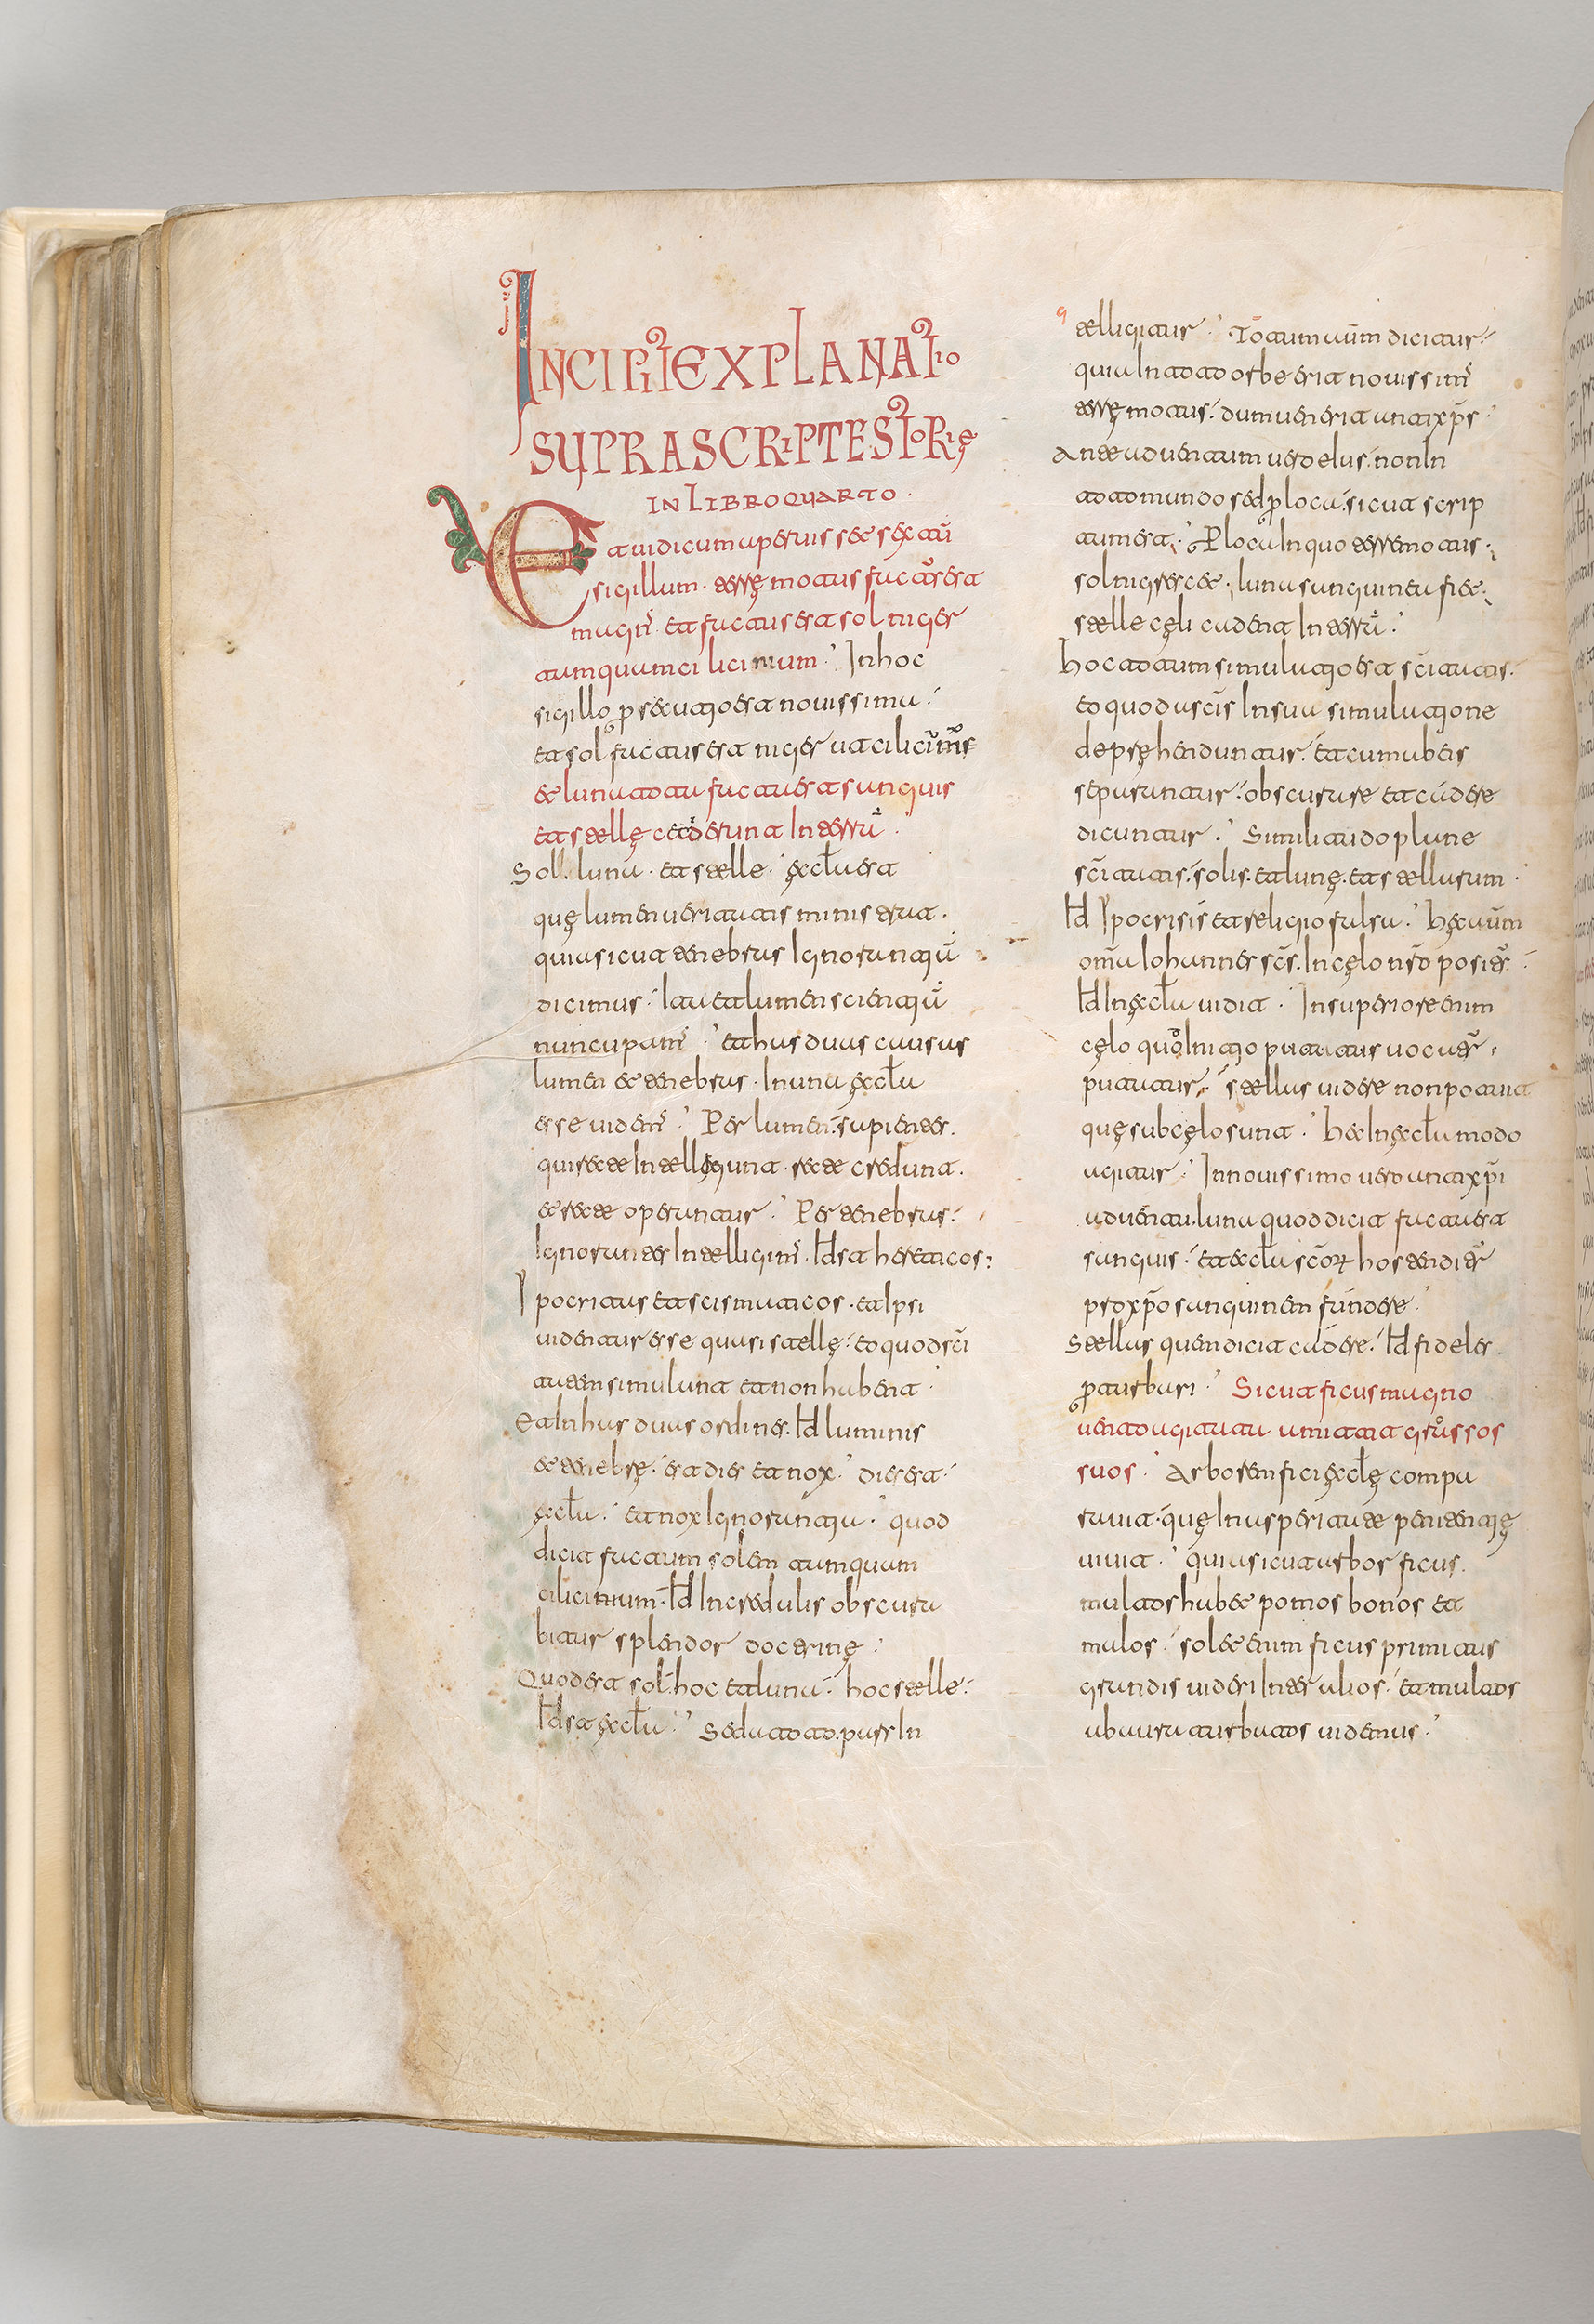 INCIPIT EXPLANATIO
SUPRASCRIPTE STORIĘ
IN LIBRO QUARTO .
Et uidi cum aperuisset sextū
sigillum . terręmotus factus est
magn̄ . et factus est sol niger
tamquam cilicinum . In hoc
sigillo ꝑsecutio est nouissima .
et sol factus est niger ut cilicīnꝰ
et luna tota facta est sanguis
et stellę ceciderunt in terrā .
Sol . luna . et stelle . ęcl̄a est
quę lumen ueritatis ministrat .
quia sicut tenebras ignorantiā
dicimus . ita et lumen scientiā
nuncupam̄ . et has duas causas
lumen et tenebras . in una ęcl̄a
esse uidem̄ . Per lumen . sapientes .
qui recte intellegunt . recte credunt .
et recte operantur . Per tenebras .
ignorantes intelligim̄ . Id est hereticos .
Ipocritas et scismaticos . et ipsi
uidentur esse quasi stellę . eo quod sc̄i
tatem simulant et non habent .
Et in has duas ordines . Id luminis
et tenebrę . est dies et nox . dies est .
ęcl̄a . et nox ignorantia . quod
dicit factum solem tamquam
cilicinum . Id incredulis obscura
bitur splendor doctrinę .
Quod est sol . hoc et luna . hoc stelle .
Id est ęcl̄a . Sed a toto . pars in
telligitur . Totum aūm dicitur .
quia in toto orbe erit nouissim̄
terręmotus . dum uenerit antixp̄s .
Ante aduentum uero eius . non in
toto mundo sed ꝑ loca . sicut scrip
tum est . Ꝑ loca in quo terremotus .
sol nigrescet . luna sanguinea fiet .
stelle cęli cadent in terrā .
Hoc totum simulatio est sc̄itatis .
eo quod a sc̄is in sua simulatione
deprehenduntur . et cum ab eis
separantur . obscurare et cadere
dicuntur . Similitudo plane
sc̄itatis . solis . et lunę . et stellarum .
Id Ipocrisis et religio falsa . Hęc aūm
om̄a Iohannes sc̄s . in cęlo nō posita .
Id in ęcl̄a uidit . In superiore enim
cęlo quō initio putatus uocatur .
putatur . stellas uidere non potuit
quę sub cęlo sunt . Hec in ęcl̄a modo
agitur . In nouissimo uero antixp̄i
aduentu . luna quod dicit facta est
sanguis . et ęcl̄a sc̄orum hostenditur
pro xp̄o sanguinem fundere .
Stellas quem dicit cadere . Id fideles
ꝑturbari . Sicut ficus magno
uento agitata amittit grossos
suos . Arborem fici ęcl̄ę compa
rauit . quę in asperitate penitentię
uiuit . quia sicut arbor ficus .
multos habet pomos bonos et
malos . solet enim ficus primitus
grandis uideri inter alios . et multos
ab aura turbatos uidemus .